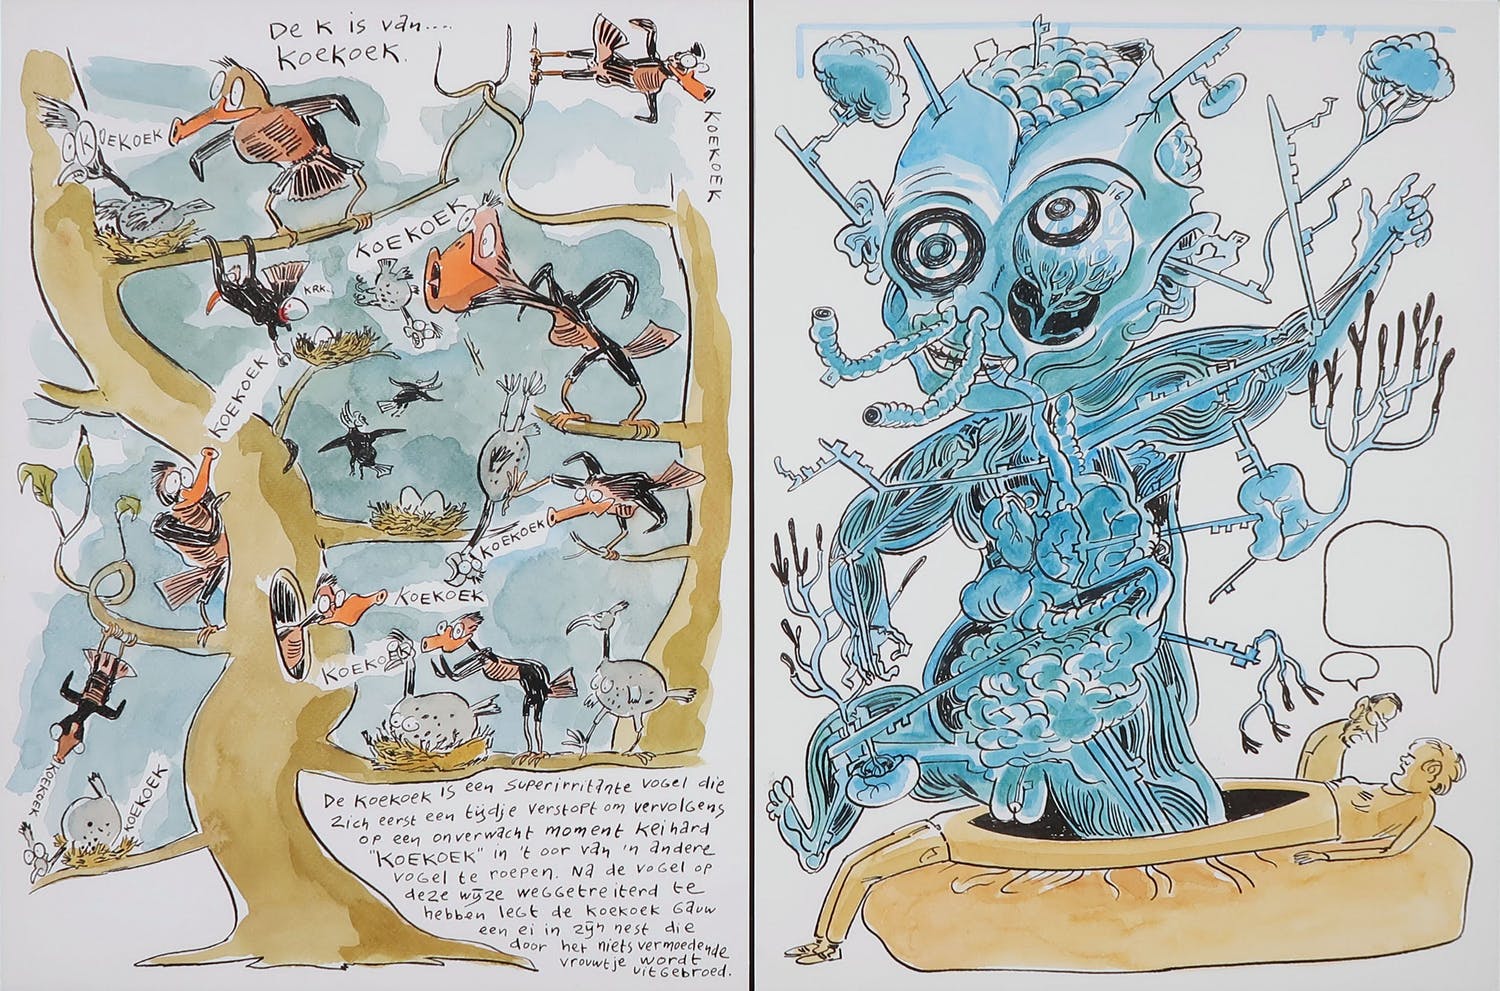 De K is van....
KoeKoek.
KOEKOEK
KOEKOEK
KOEKOEK
KRK.
KOEKOEK
KOEKOEK
KOEKOEK
KOEKOEK
KOEKOEK
KOEKOEK
De KoeKoeK is een superirritante vogel die
zich eerst een tijdje verstopt om vervolgens
op een onverwacht moment Keihard
"KOEKOEK" in 't oor van 'n andere
vogel te roepen. Na de vogel op
deze wijze weggetreiterd te
hebben legt de koekoek Gauw
een ei in zijn nest die
door het niets vermoedende
vrouwtje wordt
uitgebroed.